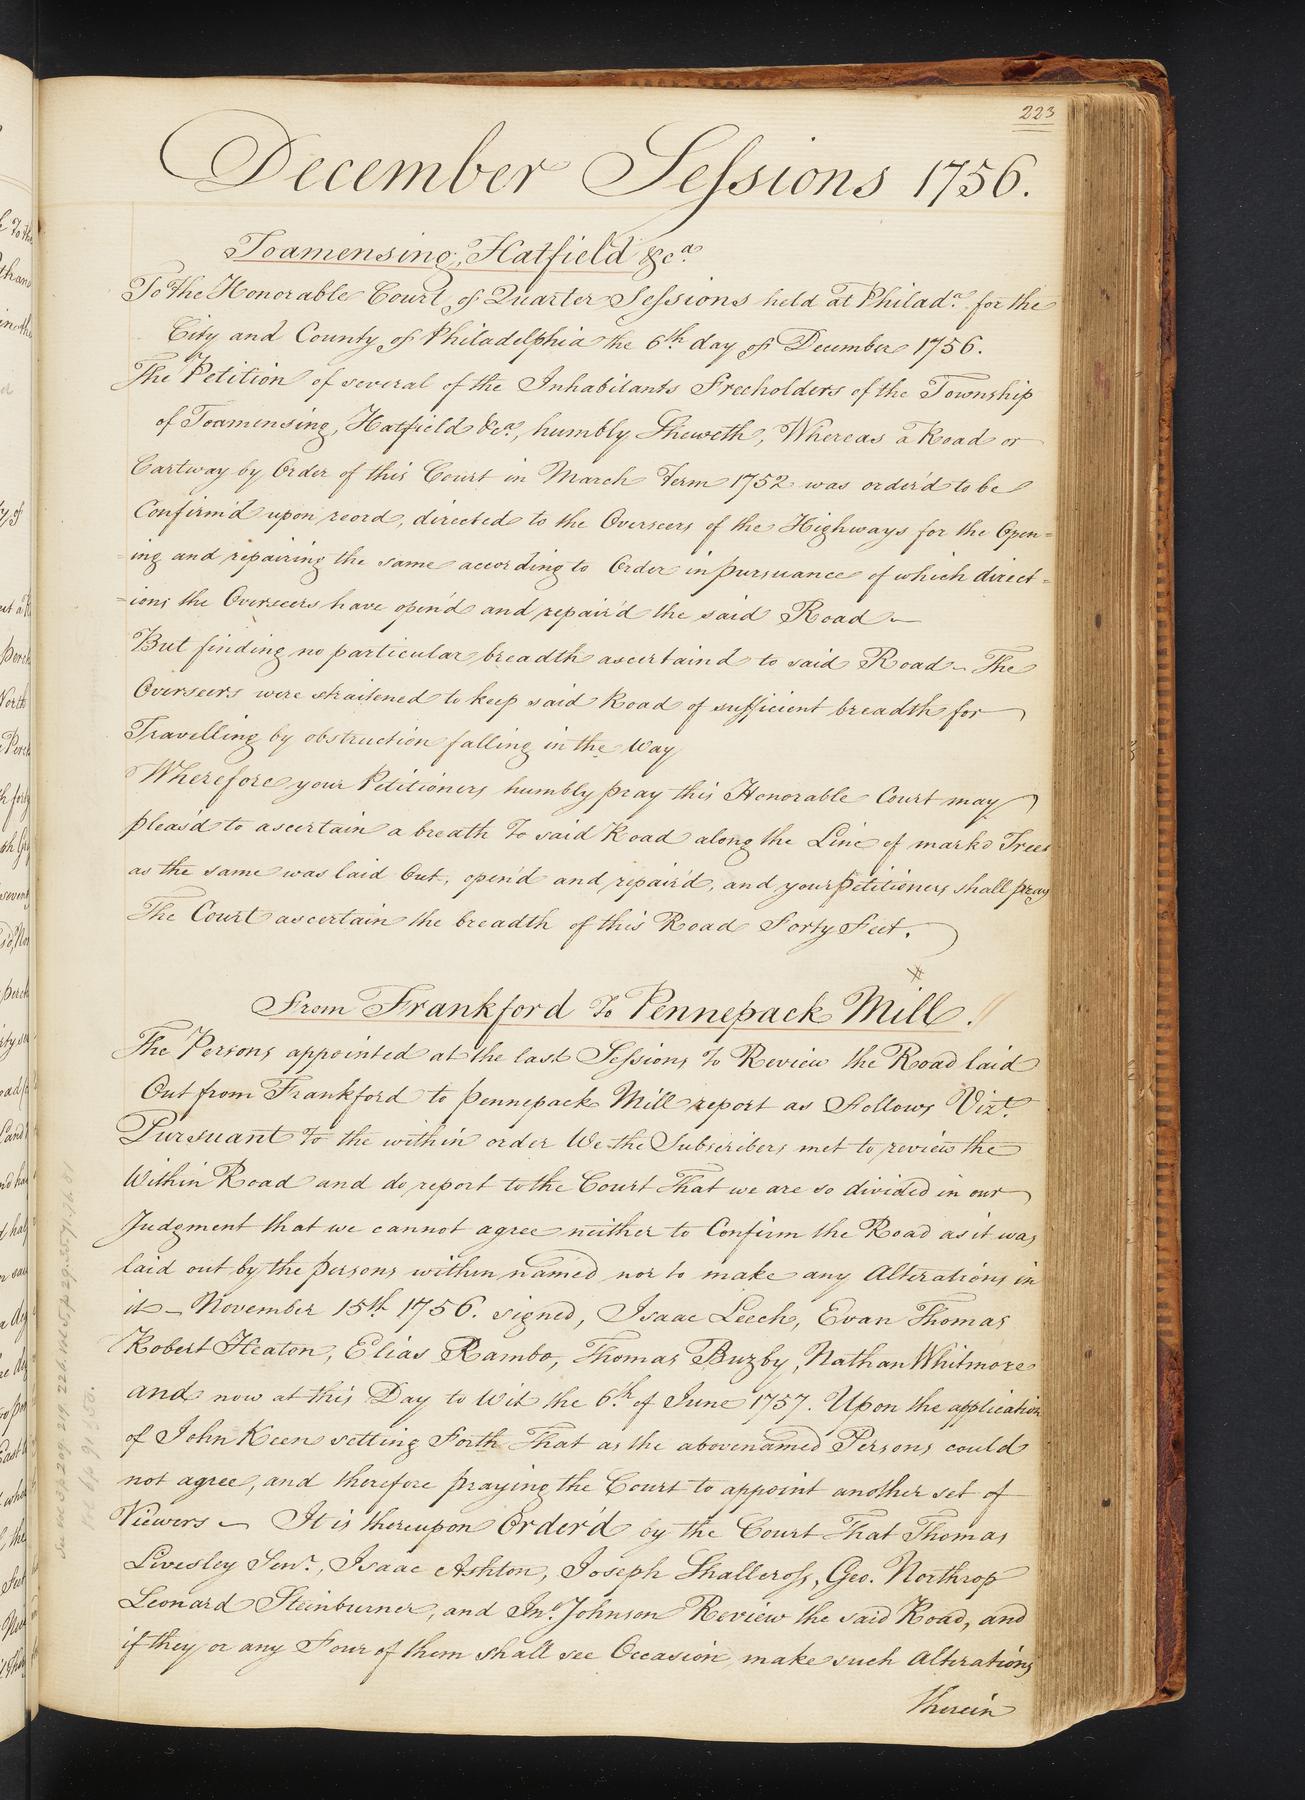 223
December Sessions 1756.
Toamensing, Hatfield &c.a
To the Honorable Court of Quarter Sessions held at Philad.a for the
City and County of Philadelphia the 6th day of December 1756.
The Petition of several of the Inhabitants Freeholders of the Township
of Toamensing, Hatfield &c.a, humbly Sheweth, Whereas a Road or
Cartway by Order of this Court in March Term 1752 was order'd to be
Confirm'd upon reord, directed to the Overseers of the Highways for the Open=
=ing and repairing the same according to Order in pursuance of which direct=
=ions the Overseers have open'd and repair'd the said Road —
But finding no particular breadth ascertaind to said Road — The
Overseers were straitened to keep said Road of sufficient breadth for
Travelling by obstruction falling in the Way
Wherefore your Petitioners humbly pray this Honorable Court may
pleas'd to ascertain a breath To said Road along the Line of markd Trees
as the same was laid Out, open'd and repair'd, and your petitioners shall pray
The Court ascertain the breadth of this Road Forty Feet.
#
From Frankford To Pennepack Mill. //
The Persons appointed at the last Sessions To Review the Road laid
Out from Frankford to pennepack Mill report as Follows Vizt.
Pursuant To the within order We the Subscribers met to review the
Within Road and do report to the Court That we are so divided in our
Judgment that we cannot agree neither to Confirm the Road as it was
laid out by the persons within named nor to make any Alterations in
it — November 15th 1756. signed, Isaac Leech, Evan Thomas
Robert Heaton, Elias Rambo, Thomas Buzby, Nathan Whitmore
and now at this Day to Wit the 6th of June 1757. Upon the application
of John Keen setting Forth That as the abovenamed Persons could
not agree, and therefore praying the Court to appoint another set of
Viewers — It is thereupon Order'd by the Court That Thomas
Livesley Senr., Isaac Ashton, Joseph Shallcross, Geo. Northrop
Leonard Steinburner, and Jno. Johnson Review the said Road, and
if they or any Four of them shall see Occasion make such Alterations
therein